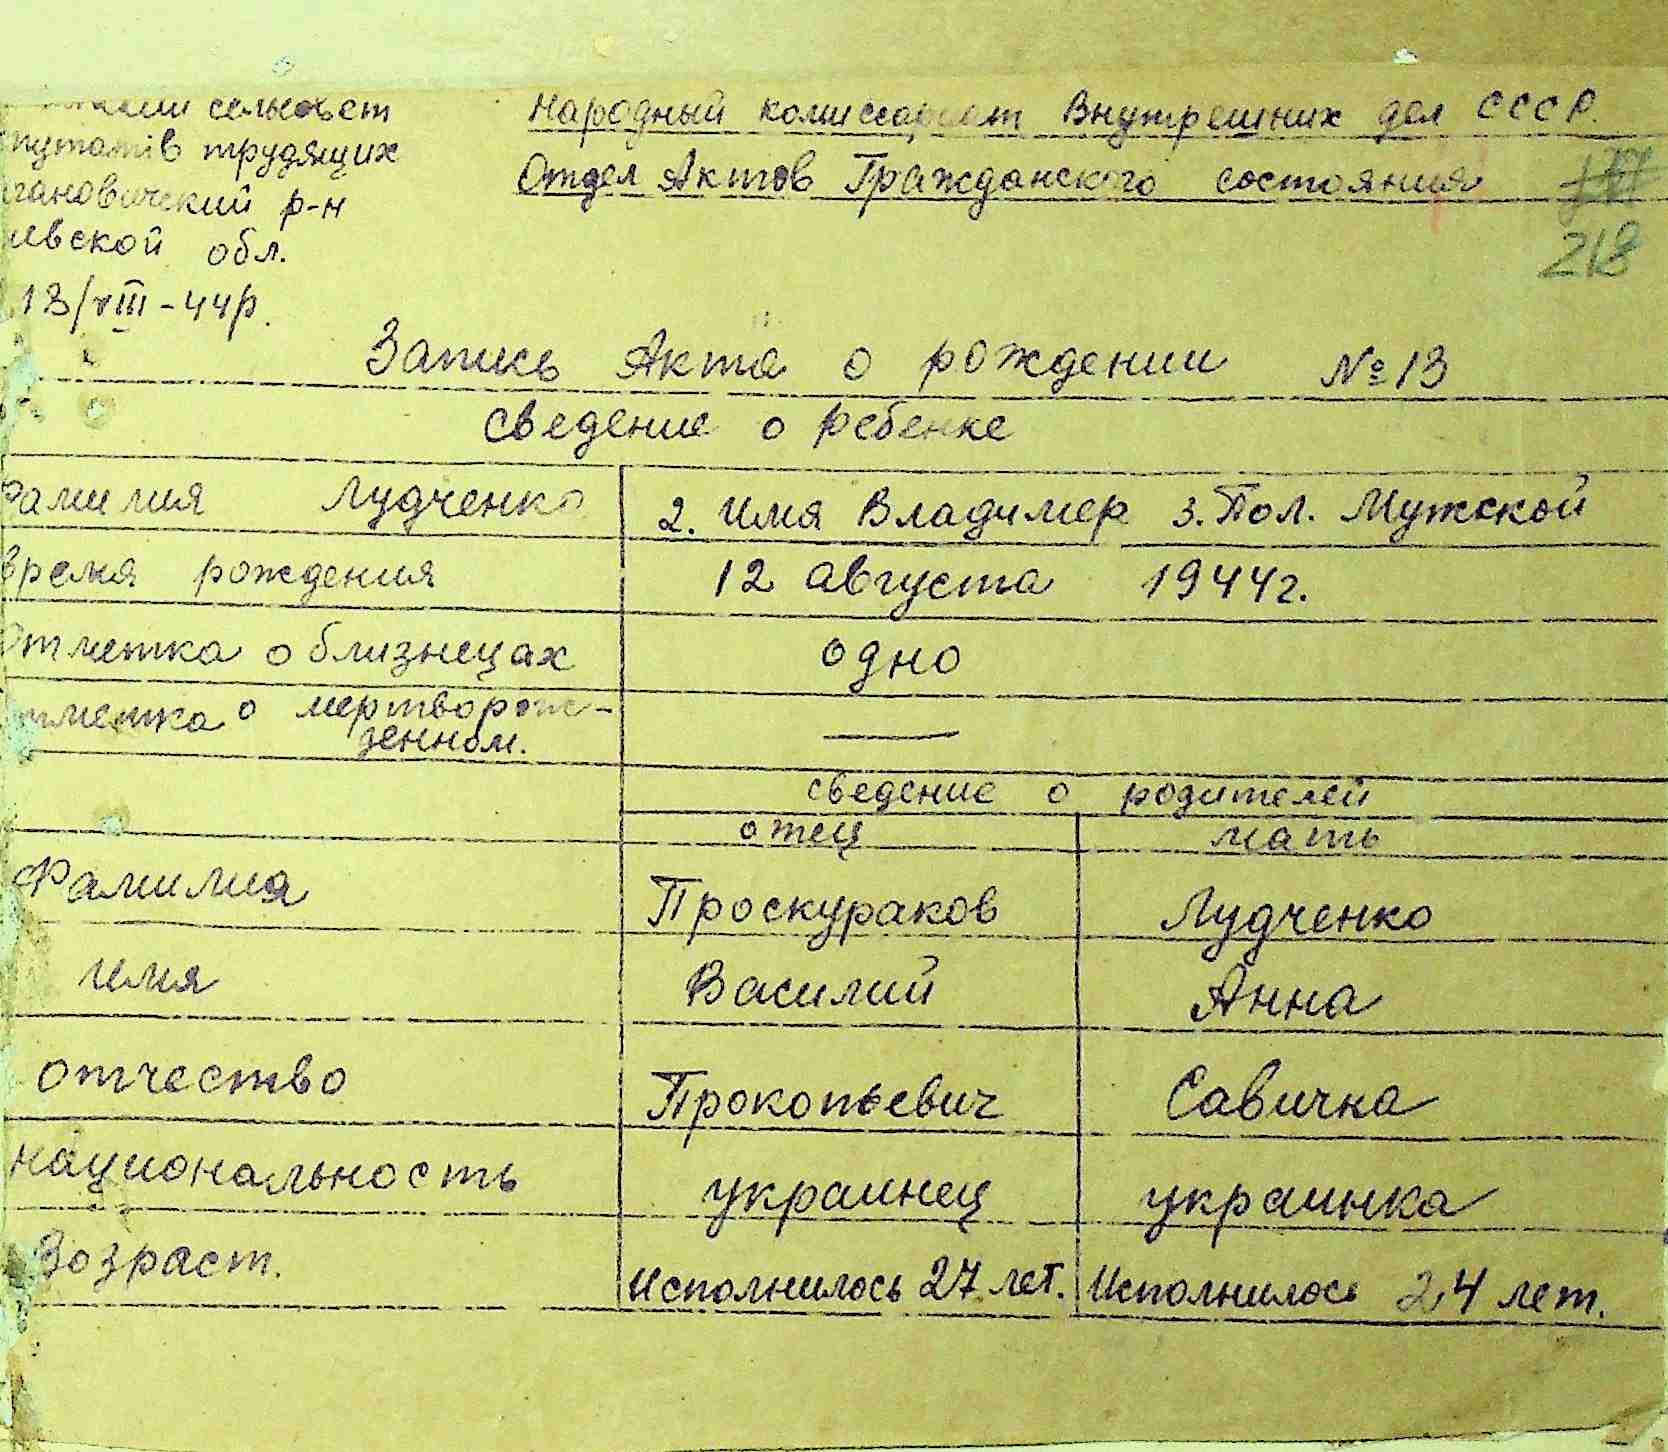 сельсовет
путатів трудящих
гановический р-н
евской обл.
13/VIII-44р.
Народный комиссариат Внутрешних дел СССР.
Отдел Актов Гражданского состояния
218
Запись Акта о рождении №13
сведение о ребенке
Фамилия Лудченко
2. Имя Владимер 3. Пол. Мужской
время рождения 12 августа 1944г.
Отметка о близнецах одно
отметка о мертворож-
зенном. —
сведение о родителей
отец мать
Фамилия Проскураков Лудченко
имя Василий Анна
отчество Прокопьевич Савична
национальность украинец украинка
Возраст. Исполнилось 27 лет. Исполнилось 24 лет.